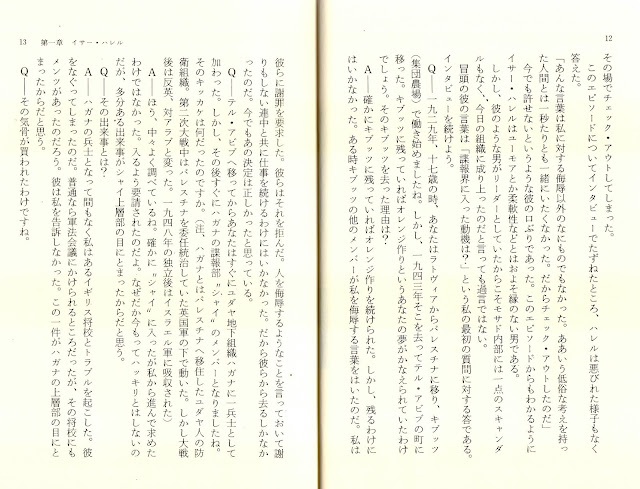 12
その場でチェック・アウトしてしまった。
このエピソードについてインタビューでたずねたところ、ハレルは悪びれた様子もなく
答えた。
「あんな言葉は私に対する侮辱以外のなにものでもなかった。ああいう低俗な考えを持っ
た人間とは一秒なりとも一緒にいたくなかった。だからチェック・アウトしたのだ」
今でも許せないというような彼の口ぶりであった。このエピソードからもわかるように
イサー・ハレルはユーモアとか柔軟性などとはおよそ縁のない男である。
しかし、彼のような男がリーダーとしていたからこそモサド内部には一点のスキャンダ
ルもなく、今日の組織に成り上ったのだと言っても過言ではない。
冒頭の彼の言葉は「諜報界に入った動機は？」という私の最初の質問に対する答である。
インタビューを続けよう。
Q――一九二九年、十七歳の時、あなたはラトヴィアからパレスチナに移り、キブツ
（集団農場）で働き始めましたね。しかし、一九四三年そこを去ってテル・アビブの町に
移った。キブツに残っていればオレンジ作りというあなたの夢がかなえられていたわけ
でしょう。そのキブツを去った理由は？
A――確かにキブツに残っていればオレンジ作りを続けられた。しかし、残るわけに
はいかなかった。ある時キブツの他のメンバーが私を侮辱する言葉をはいたのだ。私は
13 第一章 イサー・ハレル
彼らに謝罪を要求した。彼らはそれを拒んだ。人を侮辱するようなことを言っておいて謝
りもしない連中と共に仕事を続けるわけにはいかなかった。だから彼らから去るしかなか
ったのだ。今でもあの決定は正しかったと思っている。
Q――テル・アビブへ移ってからあなたはすぐにユダヤ地下組織ハガナに一兵士として
加わった。しかし、その後すぐにハガナの諜報部〝シャイ〟のメンバーとなりましたね。
そのキッカケは何だったのですか。（注、ハガナとはパレスチナへ移住したユダヤ人の防
衛組織。第二次大戦中はパレスチナを委任統治していた英国軍の下で動いた。しかし大戦
後は反英、対アラブと変った。一九四八年の独立後はイスラエル軍に吸収された）
A――ほう、中々よく調べているね。確かに〝シャイ〟に入ったが私から進んで求めた
わけではなかった。入るよう要請されたのだよ。なぜだか今もってハッキリとはしないの
だが、多分ある出来事がシャイ上層部の目にとまったからだと思う。
Q――その出来事とは？
A――ハガナの兵士となって間もなく私はあるイギリス将校とトラブルを起こした。彼
をなぐってしまったのだ。普通なら軍法会議にかけられるところだったが、その将校にも
メンツがあったのだろう。彼は私を告訴しなかった。この一件がハガナの上層部の目にと
まったからだと思う。
Q――その気骨が買われたわけですね。